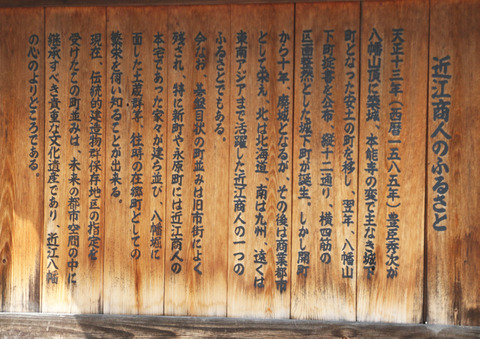 近江商人のふるさと
天正十三年(西暦一五八五年)豊臣秀次が
八幡山頂に築城、本能寺の変で主なき城下
町となった安土の町を移し、翌年、八幡山
下町掟書を公布、縦十二通り、横四筋の
区画整然とした城下町が誕生。しかし開町
から十年、廃城となるが、その後は商業都市
として栄え、北は北海道、南は九州、遠くは
東南アジアまで活躍した近江商人の一つの
ふるさとでもある。
今なお、碁盤目状の町並みは旧市街によく
残され、特に新町や永原町には近江商人の
本宅であった家々が建ち並び、八幡堀に
面した土蔵群は、往時の在郷町としての
繁栄を伺い知ることが出来る。
現在、伝統的建造物群保存地区の指定を
受けたこの町並みは、未来の都市空間の中に
継承すべき貴重な文化遺産であり、近江八幡
の心のよりどころである。